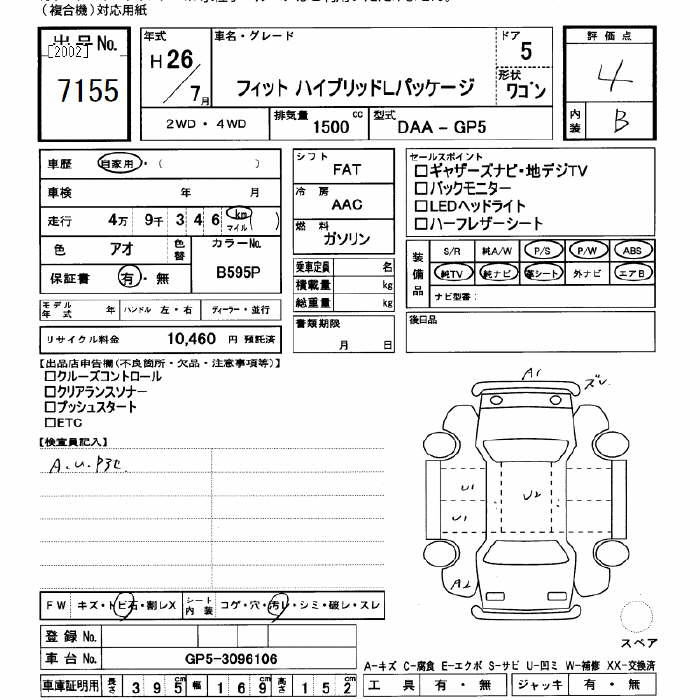 （複合機）対応用紙
出品No.
[2002]
7155
年式
H26／7月
車名・グレード
フィット ハイブリッドLパッケージ
ドア
5
形状
ワゴン
評価点
4
内装
B
2WD・4WD
排気量
1500 cc
型式
DAA － GP5
車歴 自家用・（ ）
車検 年 月
走行 4万 9千 3 4 6 km マイル ( )
色 アオ 色替
カラーNo.
B595P
保証書 有・無
シフト
FAT
冷房
AAC
燃料
ガソリン
乗車定員 名
積載量 kg
総重量 kg
セールスポイント
□ギャザーズナビ・地デジTV
□バックモニター
□LEDヘッドライト
□ハーフレザーシート
装備品
S/R 純A/W P/S P/W ABS
純TV 純ナビ 革シート 外ナビ エアB
ナビ型番：
モデル年式 年 ハンドル 左・右 ディーラー・並行
リサイクル料金 10,460 円 預託済
書類期限
月 日
後日品
【出品店申告欄(不良箇所・欠品・注意事項等)】
□クルーズコントロール
□クリアランスソナー
□プッシュスタート
□ETC
【検査員記入】
A1
U1
U2
U1
A2
スペア
FW キズ・トビ石・割レX
シート内装 コゲ・穴・汚レ・シミ・破レ・スレ
登録No.
車台No. GP5-3096106
A-キズ C-腐食 E-エクボ S-サビ U-凹ミ W-補修 XX-交換済
車庫証明用 長さ 3 9 5 cm 幅 1 6 9 cm 高さ 1 5 2 cm
工具 有・無 ジャッキ 有・無